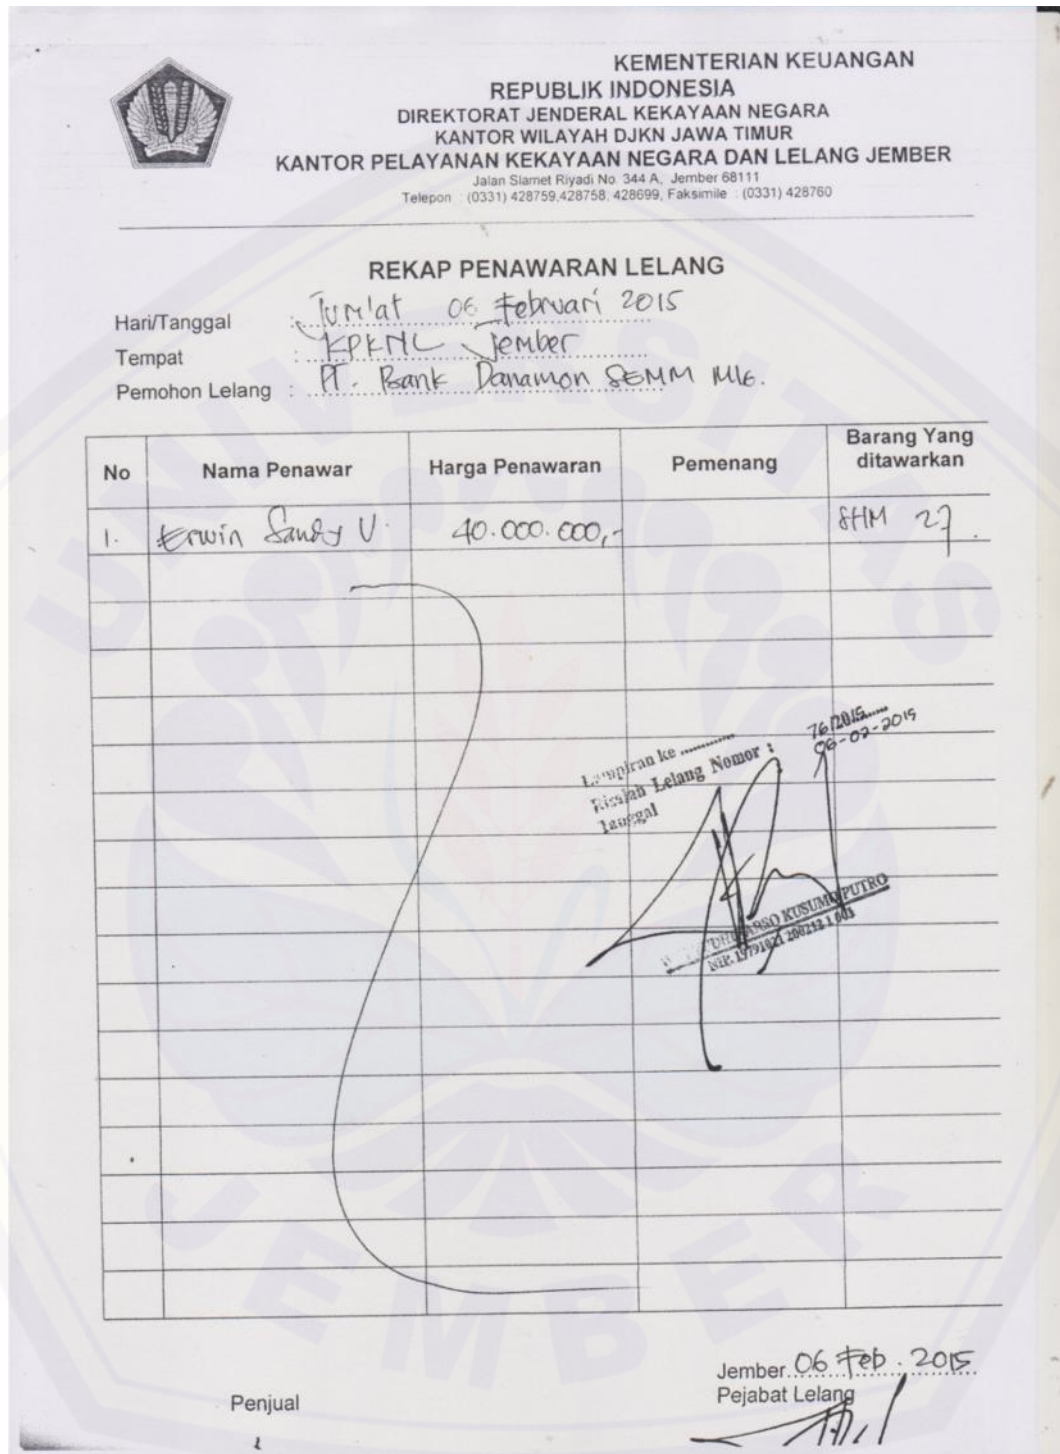 KEMENTERIAN KEUANGAN
REPUBLIK INDONESIA
DIREKTORAT JENDERAL KEKAYAAN NEGARA
KANTOR WILAYAH DJKN JAWA TIMUR
KANTOR PELAYANAN KEKAYAAN NEGARA DAN LELANG JEMBER
Jalan Slamet Riyadi No. 344 A, Jember 68111
Telepon : (0331) 428759,428758, 428699, Faksimile : (0331) 428760
REKAP PENAWARAN LELANG
Hari/Tanggal : Jum'at 06 Februari 2015
Tempat : KPKNL Jember
Pemohon Lelang : PT. Bank Danamon SEMM Mlg.
No Nama Penawar Harga Penawaran Pemenang Barang Yang ditawarkan
1. Erwin Sandy V. 40.000.000,- SHM 27.
Lampiran ke ............
Risalah Lelang Nomor : 76/2015
Tanggal 06-02-2015
KUSUMO PUTRO
NIP. 19791021 200212 1 003
Jember 06 Feb. 2015
Penjual Pejabat Lelang
UNIVERSITAS
JEMBER